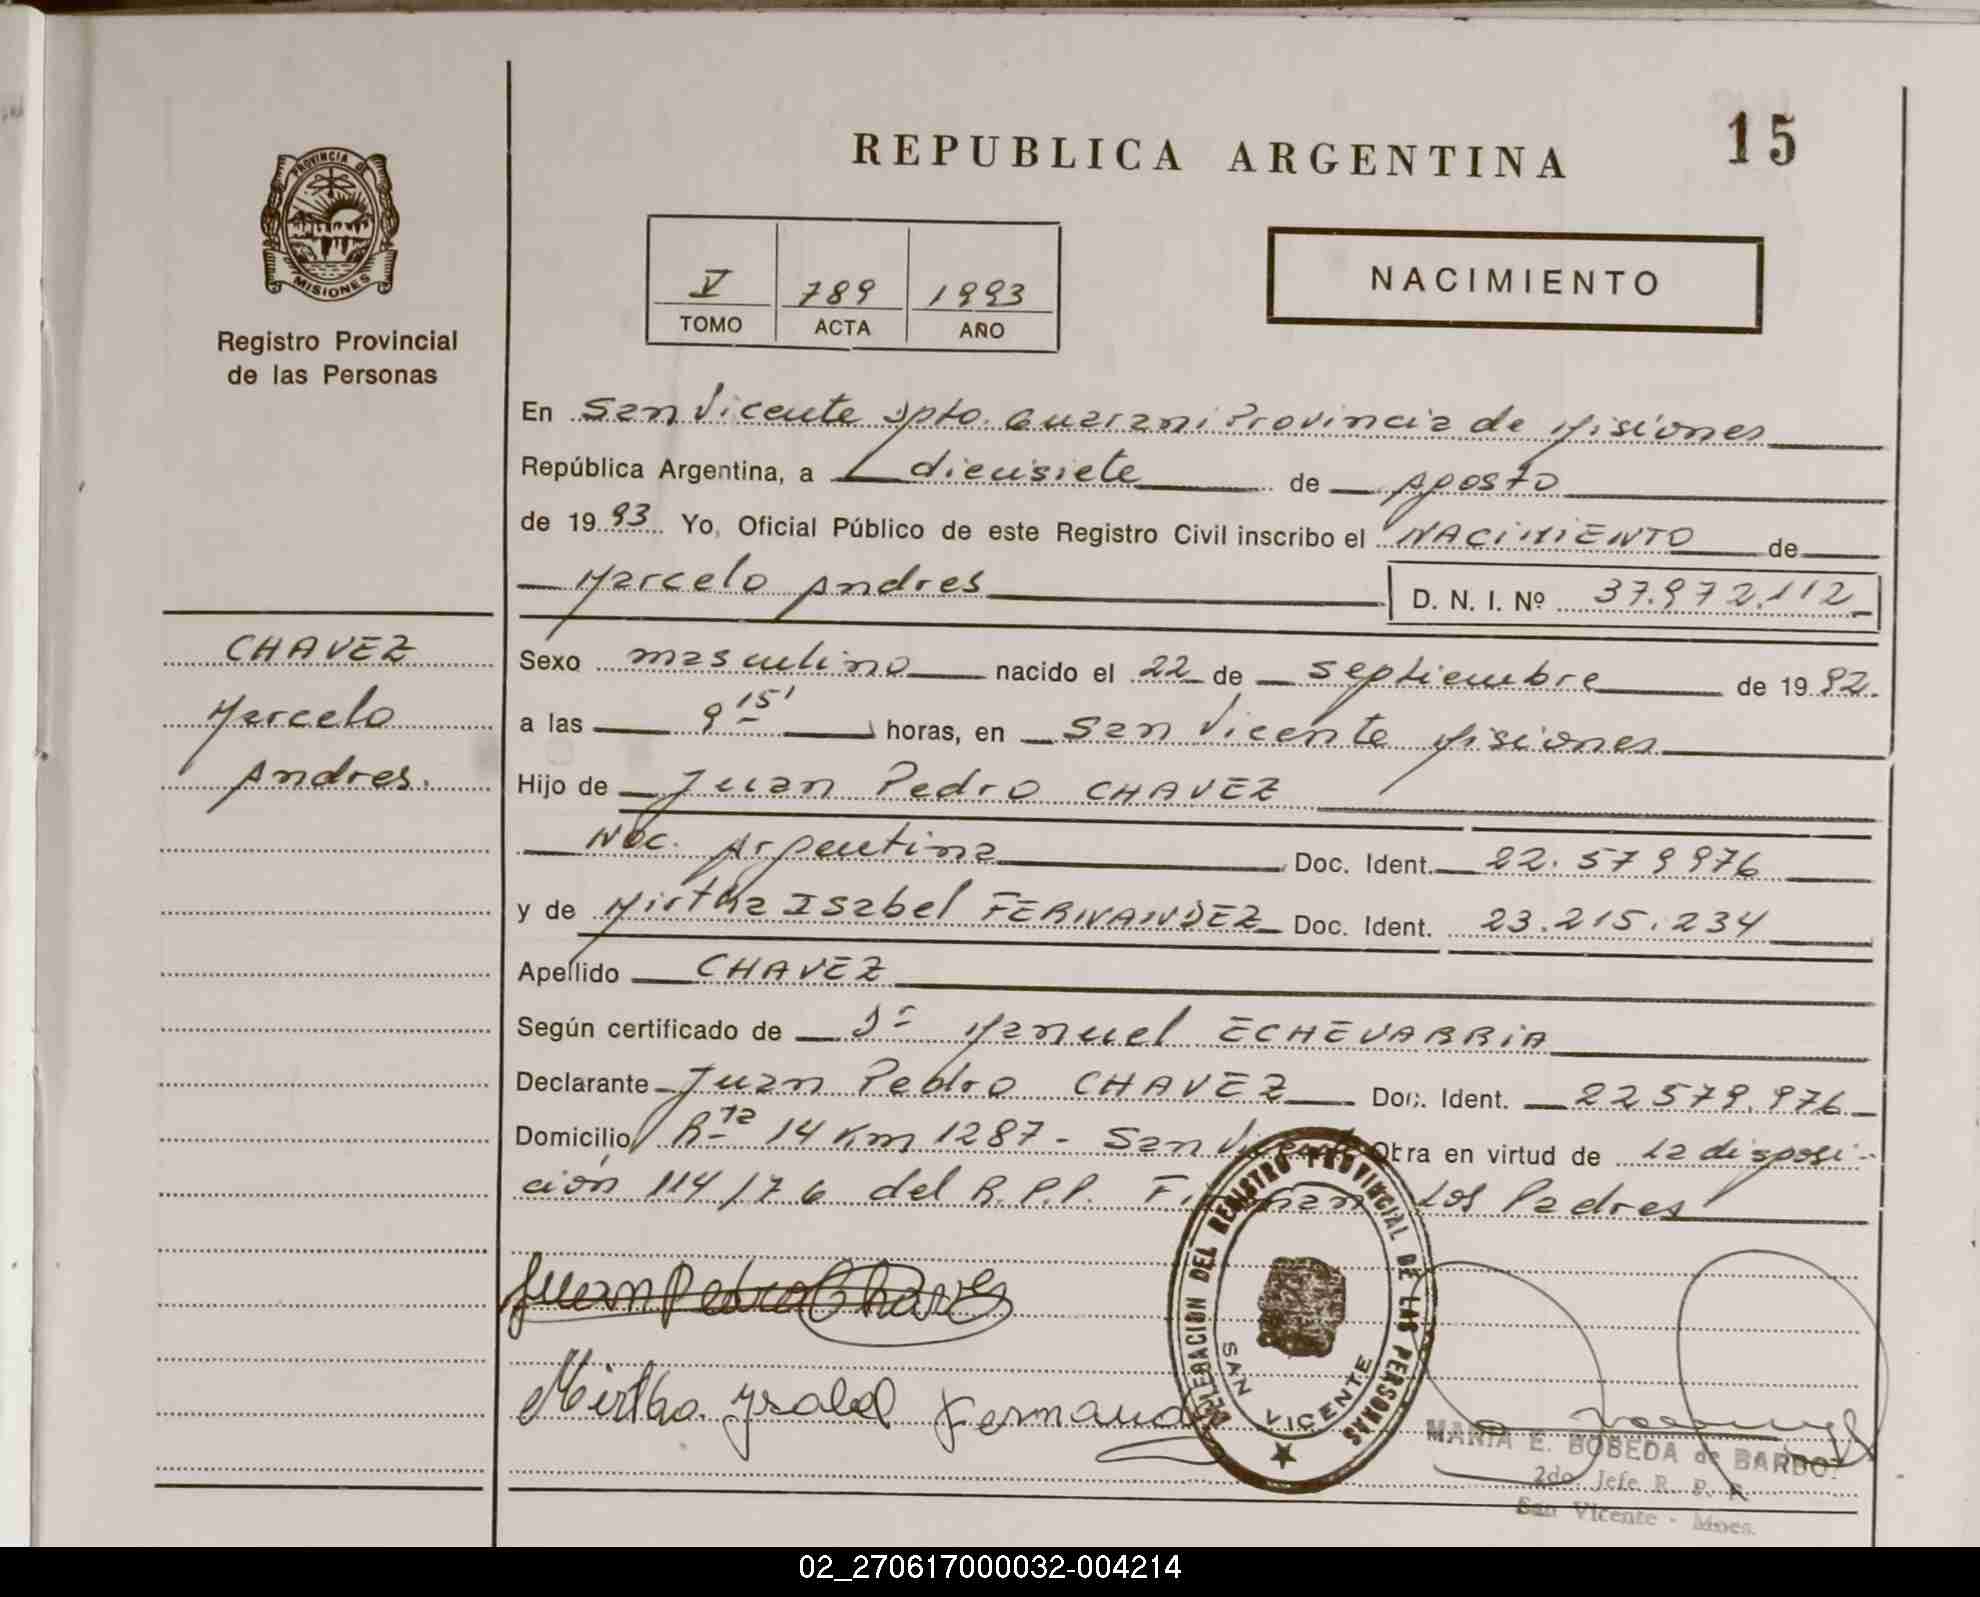 15
REPUBLICA ARGENTINA
PROVINCIA DE
MISIONES
Registro Provincial
de las Personas
NACIMIENTO
V 789 1993
TOMO ACTA AÑO
En San Vicente Dpto. Guarani Provincia de Misiones
República Argentina, a diecisiete de Agosto
de 1993 Yo, Oficial Público de este Registro Civil inscribo el NACIMIENTO de
Marcelo Andres D. N. I. Nº 37.972.112
CHAVEZ
Marcelo
Andres.
Sexo masculino nacido el 22 de septiembre de 1992.
a las 9 15' horas, en San Vicente Misiones
Hijo de Juan Pedro CHAVEZ
Nac. Argentina Doc. Ident. 22.579976
y de Mirtha Isabel FERNANDEZ Doc. Ident. 23.215.234
Apellido CHAVEZ
Según certificado de Dr Manuel ECHEVARRIA
Declarante Juan Pedro CHAVEZ Doc. Ident. 22579.976
Domicilio Rta 14 Km 1287 - San Vicente Obra en virtud de la disposi-
ción 114/76 del R.P.P. Firman Los Padres
Juan Pedro Chavez
Mirtha Ysabel Fernand
DELEGACION DEL REGISTRO PROVINCIAL DE LAS PERSONAS
SAN VICENTE
MARIA E. BOBEDA de BARDO
2do. Jefe R. P. P.
San Vicente - Mnes.
02_270617000032-004214